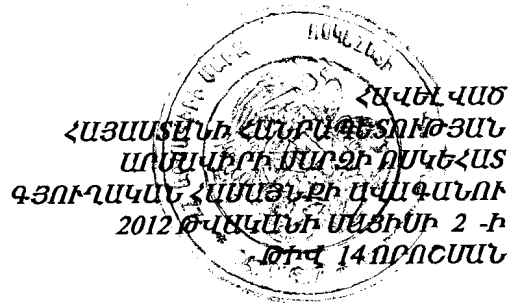 ՀԱՎԵԼՎԱԾ
ՀԱՅԱՍՏԱՆԻ ՀԱՆՐԱՊԵՏՈՒԹՅԱՆ
ԱՐՄԱՎԻՐԻ ՄԱՐԶԻ ՈՍԿԵՀԱՏ
ԳՅՈՒՂԱԿԱՆ ՀԱՄԱՅՆՔԻ ԱՎԱԳԱՆՈՒ
2012 ԹՎԱԿԱՆԻ ՄԱՅԻՍԻ 2 -Ի
ԹԻՎ 14 ՈՐՈՇՄԱՆ